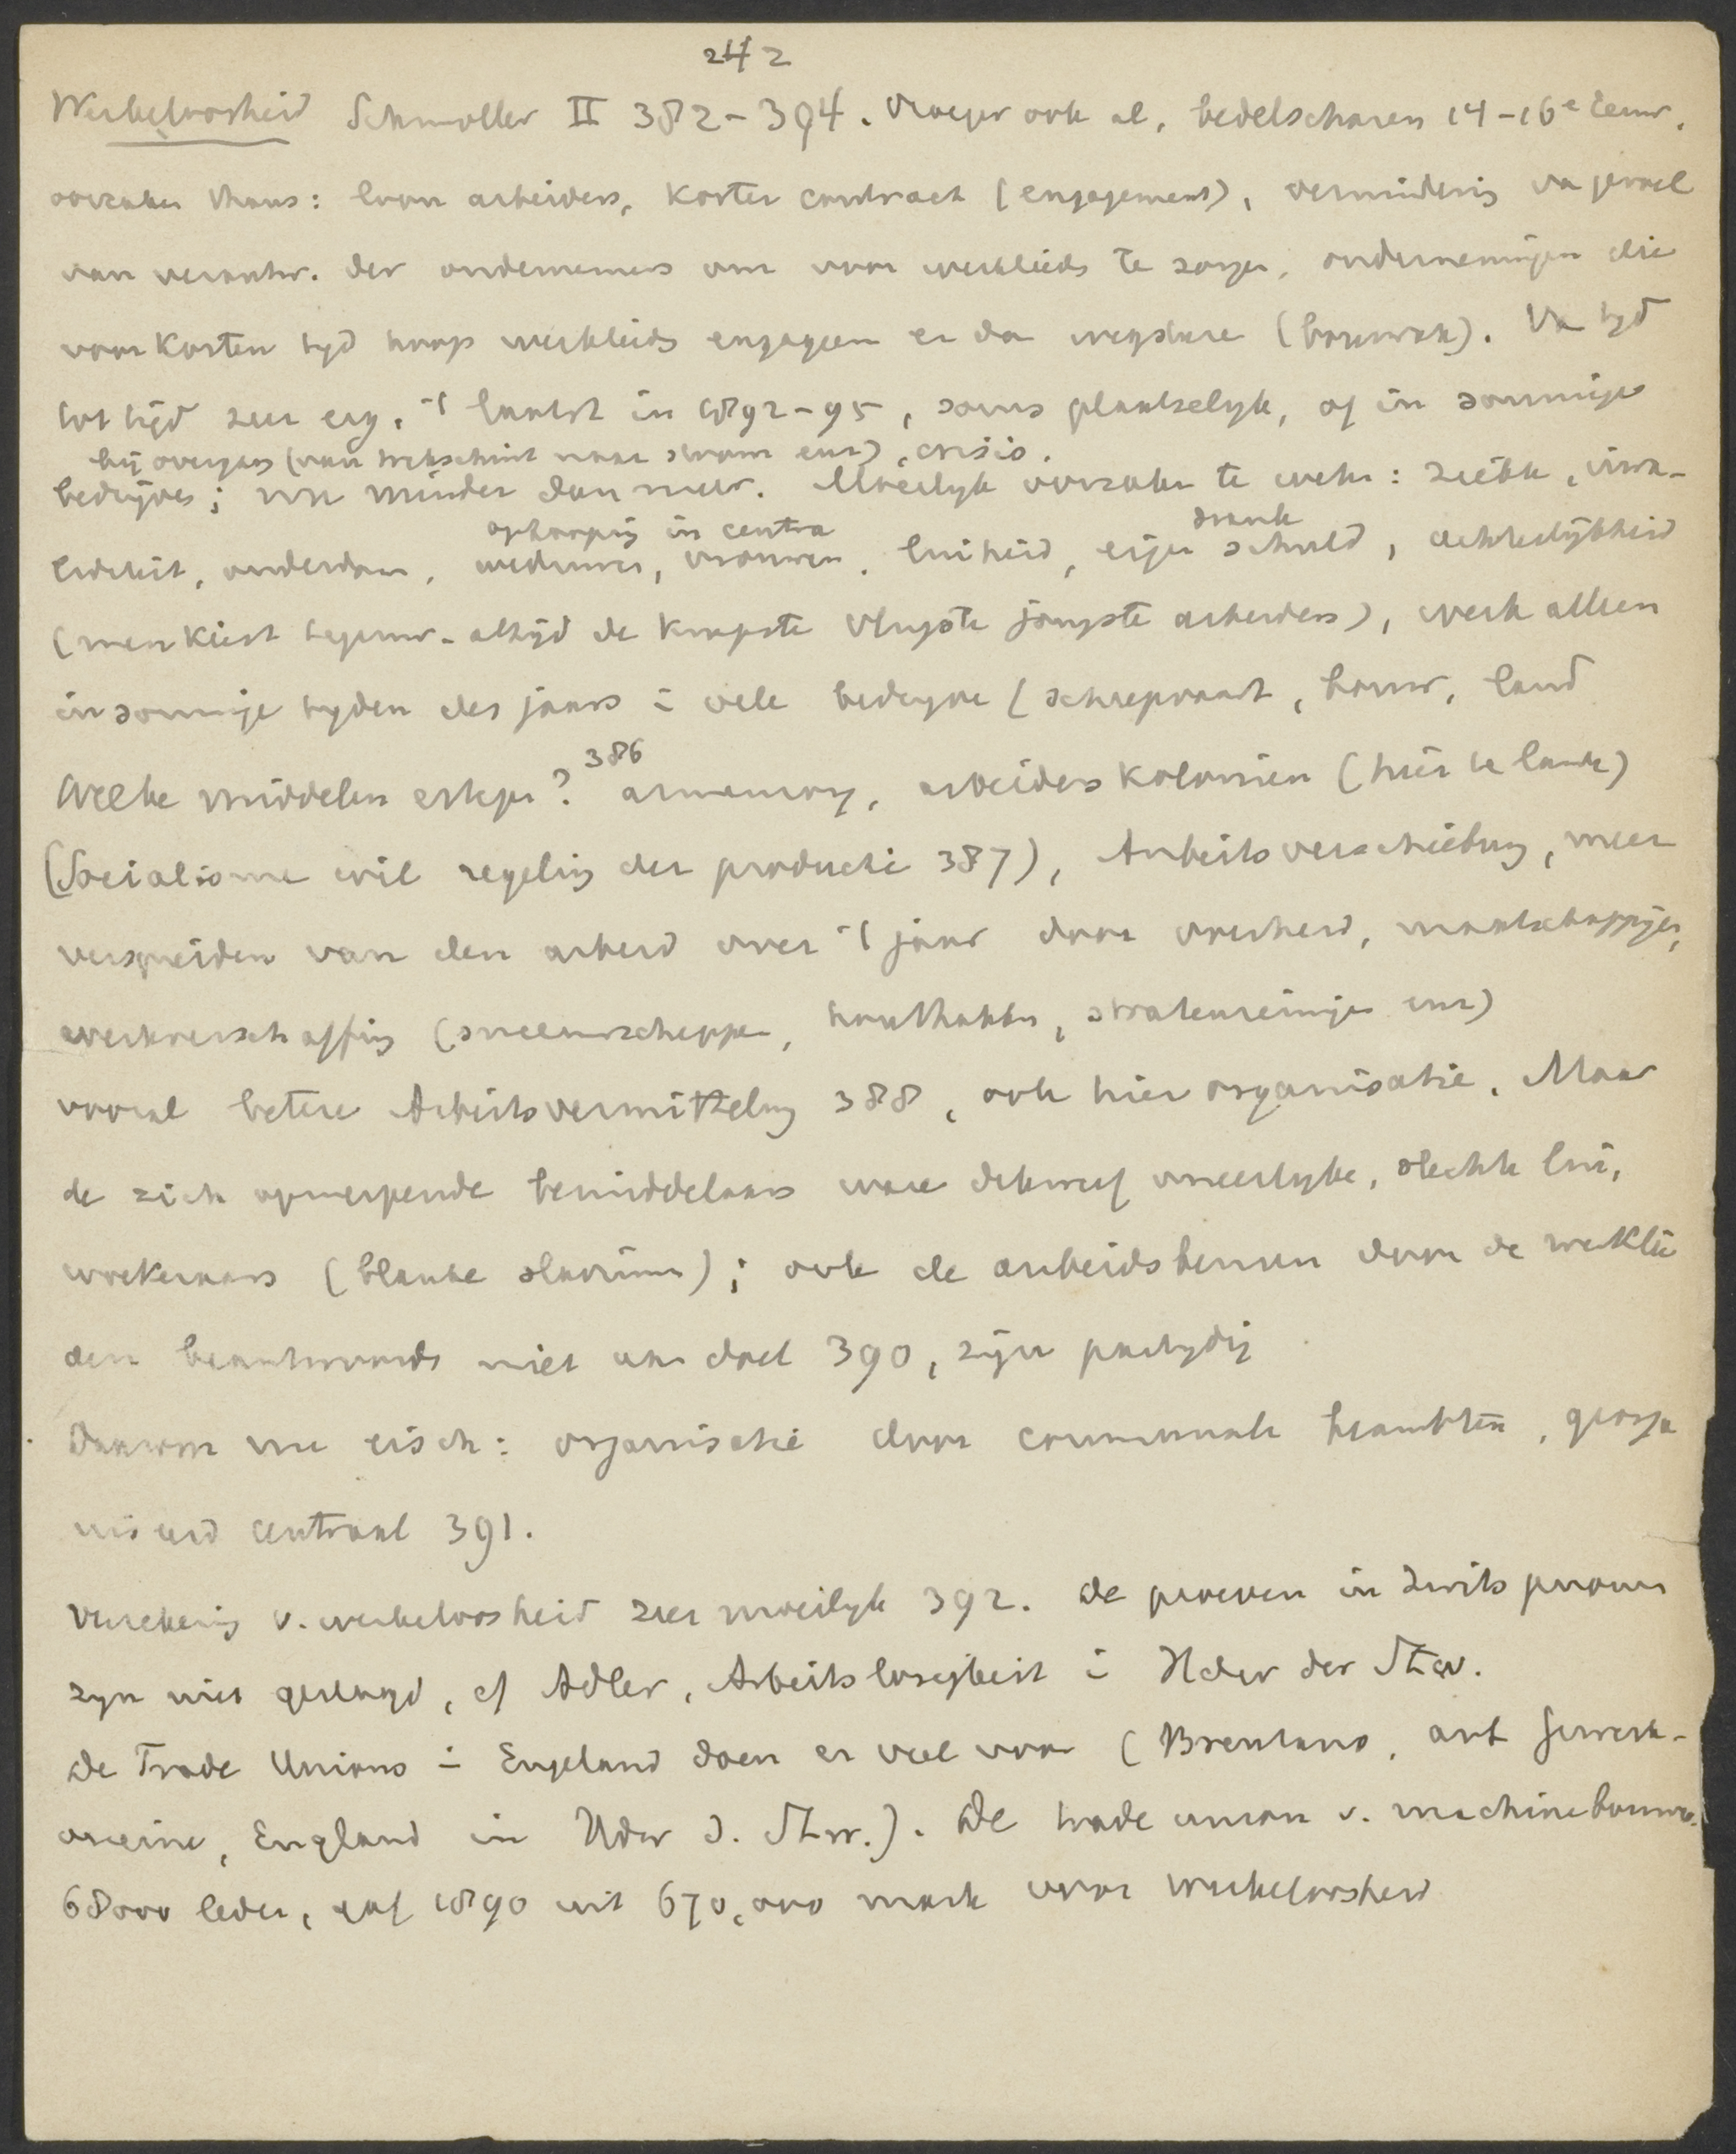 242
Werkeloosheid Schmoller II 382-394. Vroeger ook al, bedelscharen 14-16e eeuw.
oorzaken thans: loon arbeiders, korter contract (engagement), vermindering van gevoel
van verantw. der ondernemers om voor werklieds te zorgen, ondernemingen die
voor korten tyd hoop werklieds engageren en dan wegsturen (bouwvak). Van tyd
tot tijd zeer erg. 't laatst in 1892-95, soms plaatselyk, of in sommige
bij overgang (van trekschuit naar stoom enz), crisis.
bedrijven; nu minder dan meer. Moeilyk oorzaken te weten: ziekte, inva-
ophooping in centra drank
liditeit, ouderdom, weduwen, vrouwen, luiheid, eigen schuld, achterlijkheid
(men kiest tegenw. altijd de knapste vlugste jongste arbeiders), werk alleen
in sommige tyden des jaars i vele bedryven (scheepvaart, bouw, land
386
Welke middelen ertegen? armenzorg, arbeiderskolonien (hier te lande)
(Socialisme wil regeling der productie 387), Arbeitsverschiebung, meer
verspreiden van den arbeid over 't jaar door overheid, maatschappijen,
werkverschaffing (sneeuwscheppen, houthakken, stratenreinigen enz)
vooral betere Arbeitsvermittelung 388, ook hier organisatie. Maar
de zich opwerpende bemiddelaars waren dikwijls oneerlyke, slechte lui,
woekeraars (blanke slavinnen); ook de arbeidsbeurzen door de werklie
den beantwoords niet aan doel 390, zijn partydig
Daarom nu eisch: organisatie door communale beambten, georga
niseerd centraal 391.
Verzekering v. werkeloosheid zeer moeilyk 392. De proeven in Zwits genomen
zyn niet geslaagd, cf Adler, Arbeitslosigkeit i Hdw der Stw.
De Trade Unions i Engeland doen er veel voor (Brentano, art Gewerk-
vereine, England in Hdw d. Stw.). De trade union v. machinebouwers
68000 leden, gaf 1890 uit 670,000 mark voor werkeloosheid